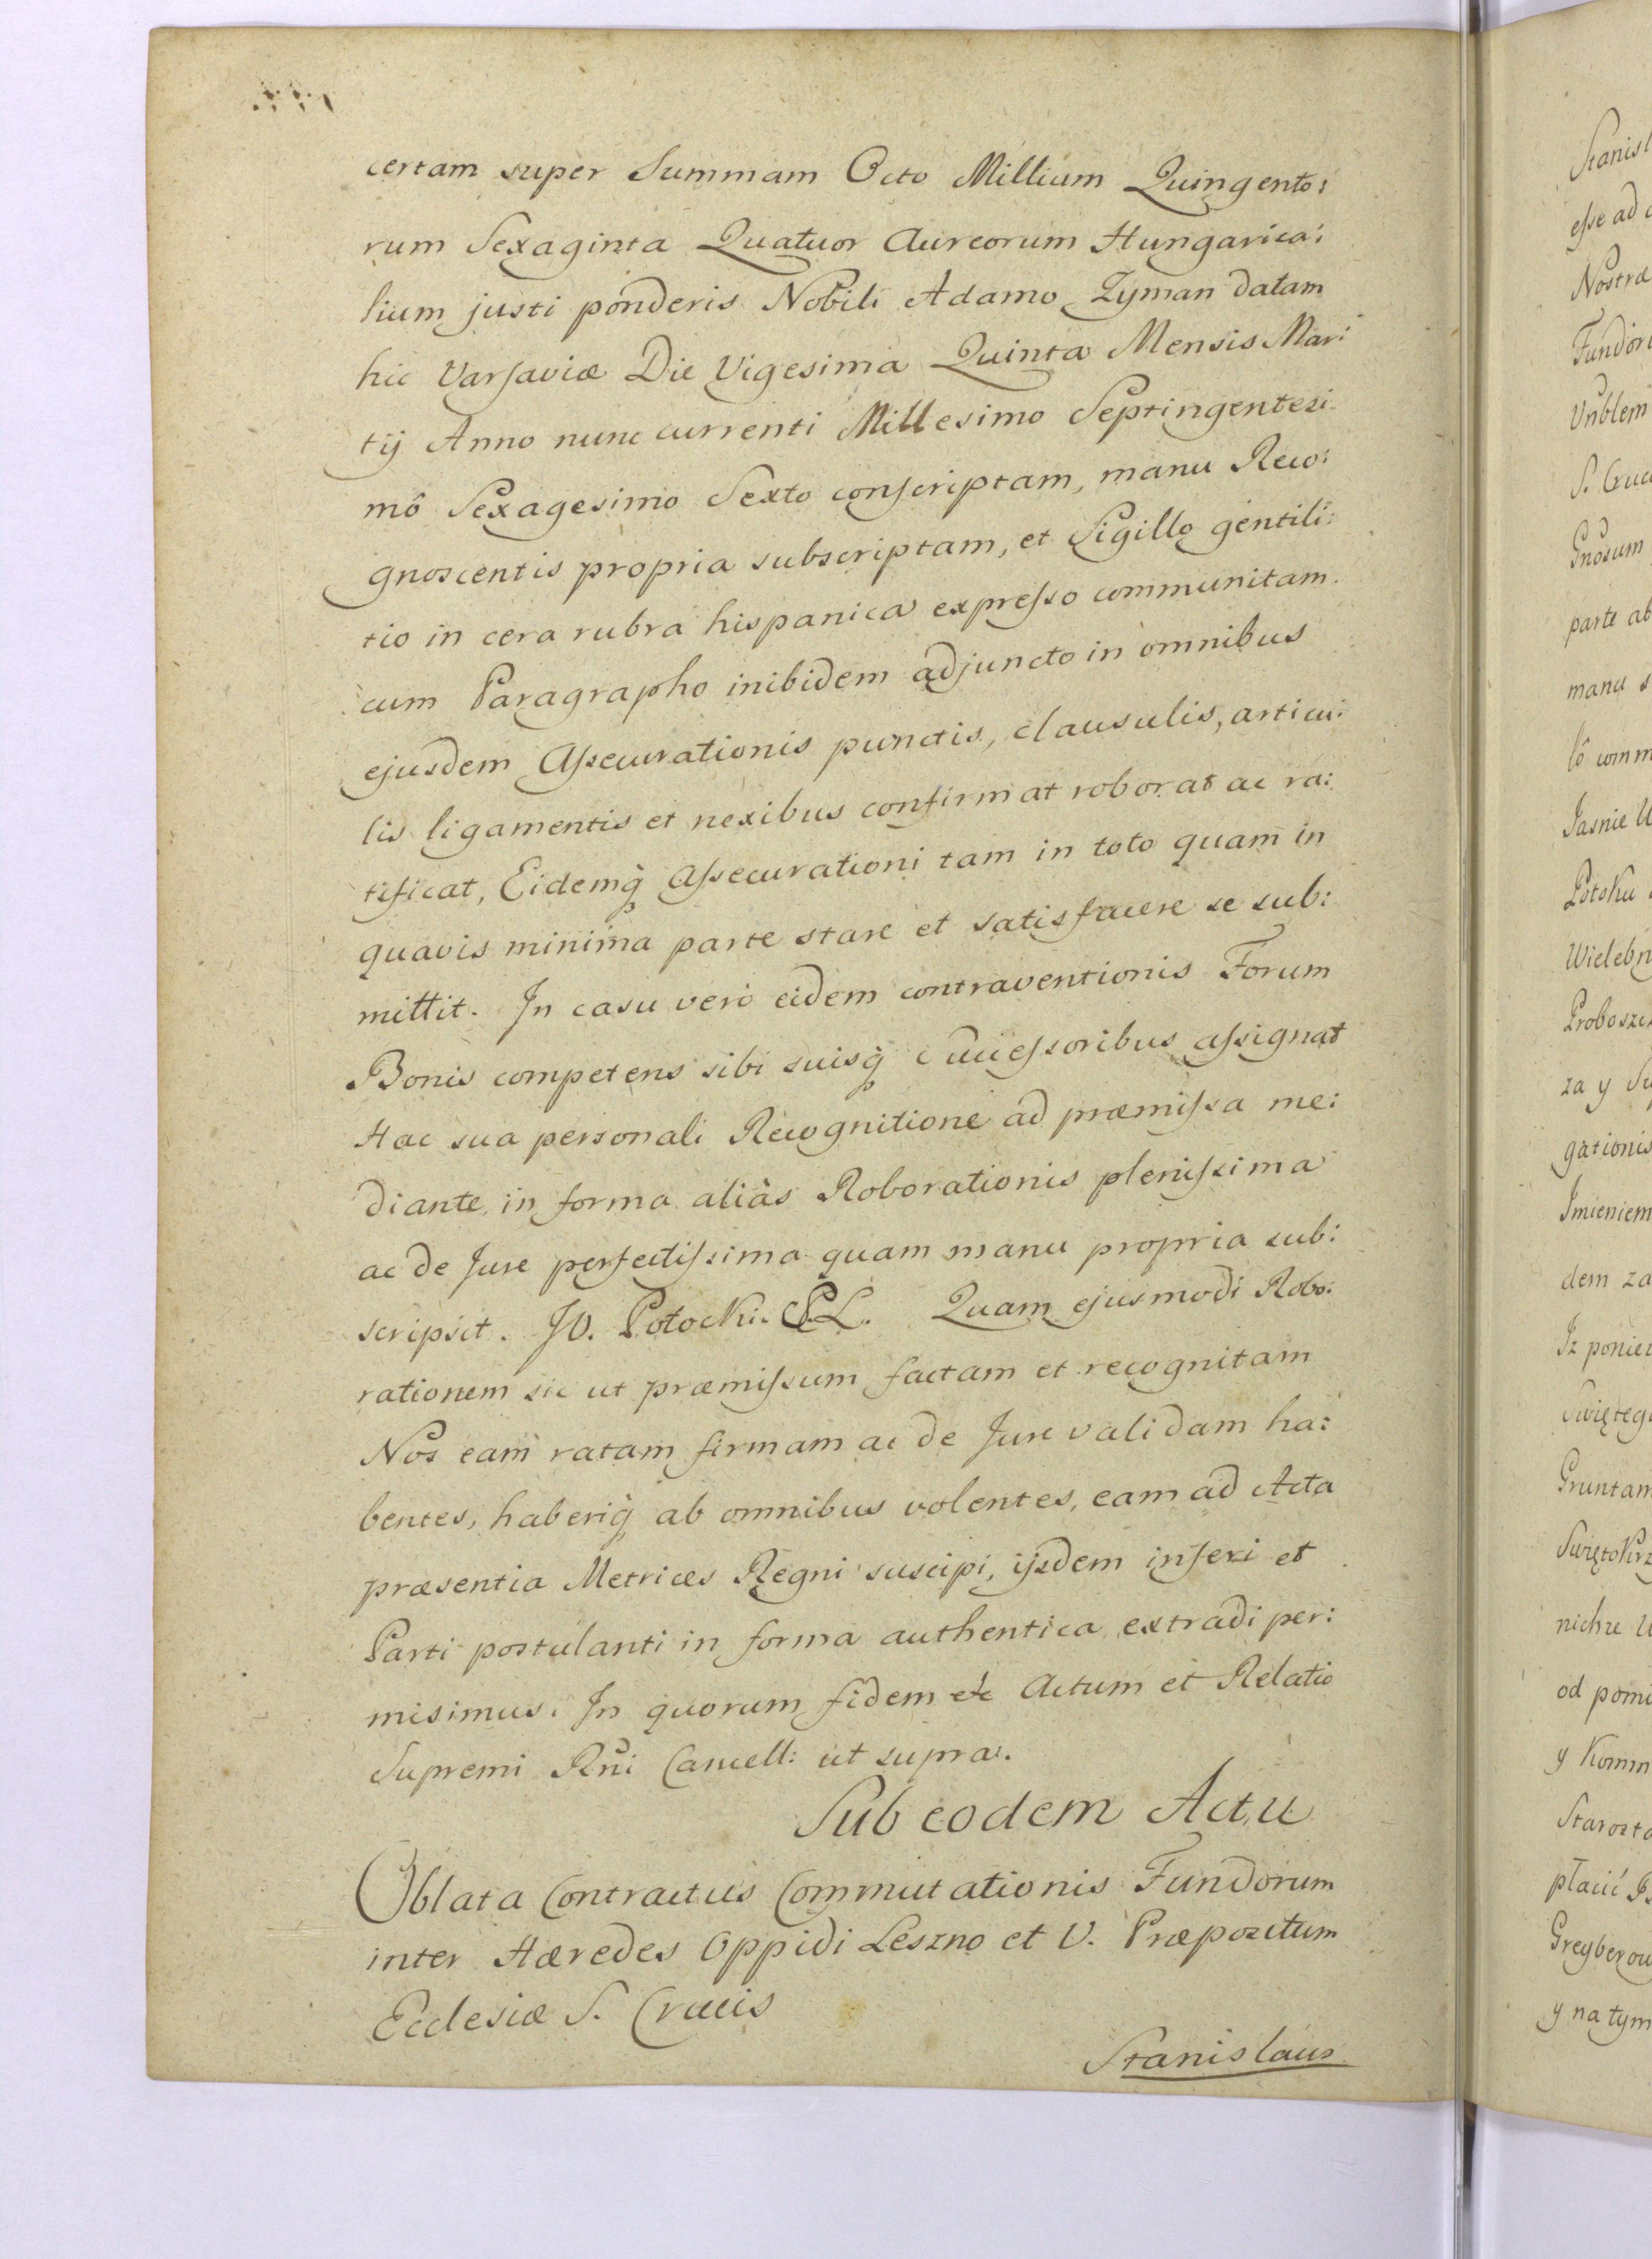 certam super Summam Octo Millium Quingento:
rum Sexaginta Quatuor Aureorum Hungarica:
lium justi ponderis Nobili Adamo Zyman datam
hic Varsaviæ Die Vigesima Quinta Mensis Mar:
tij Anno nunc currenti Millesimo Septingentesi
mô Sexagesimo Sexto conscriptam, manu Reco:
gnoscentis propria subscriptam, et Sigillo gentili:
tio in cera rubra hispanica expresso communitam
cum Paragrapho inibidem adjuncto in omnibus
ejusdem Assecurationis punctis, clausulis, articu:
lis ligamentis et nexibus confirmat roborat ac ra:
tificat, Eidemq̀ Assecurationi tam in toto quam in
quavis minima parte stare et satisfacere se sub:
mittit. In casu verò eidem contraventionis Forum
Bonis competens sibi suisq̀ successoribus assignat
Hac sua personali Recognitione ad præmissa me:
diante in forma aliàs Roborationis plenissima
ac de Jure perfectissima quam manu propria sub:
scripsit. JO. Potocki. S.P.L. Quam ejusmodi Robo:
rationem sic ut præmissum factam et recognitam
Nos eam ratam firmam ac de Jure validam ha:
bentes, haberiq̀ ab omnibus volentes, eam ad Acta
præsentia Metrices Regni suscipi, ijsdem inseri et
Parti postulanti in forma authentica extradi per:
misimus. In quorum fidem etc Actum et Relatio
Supremi Rni Cancell: ut supra.
Sub eodem Actu
Oblata Contractus Commutationis Fundorum
inter Hæredes Oppidi Leszno et V. Præpositum
Ecclesiæ S. Crucis
Stanislaus